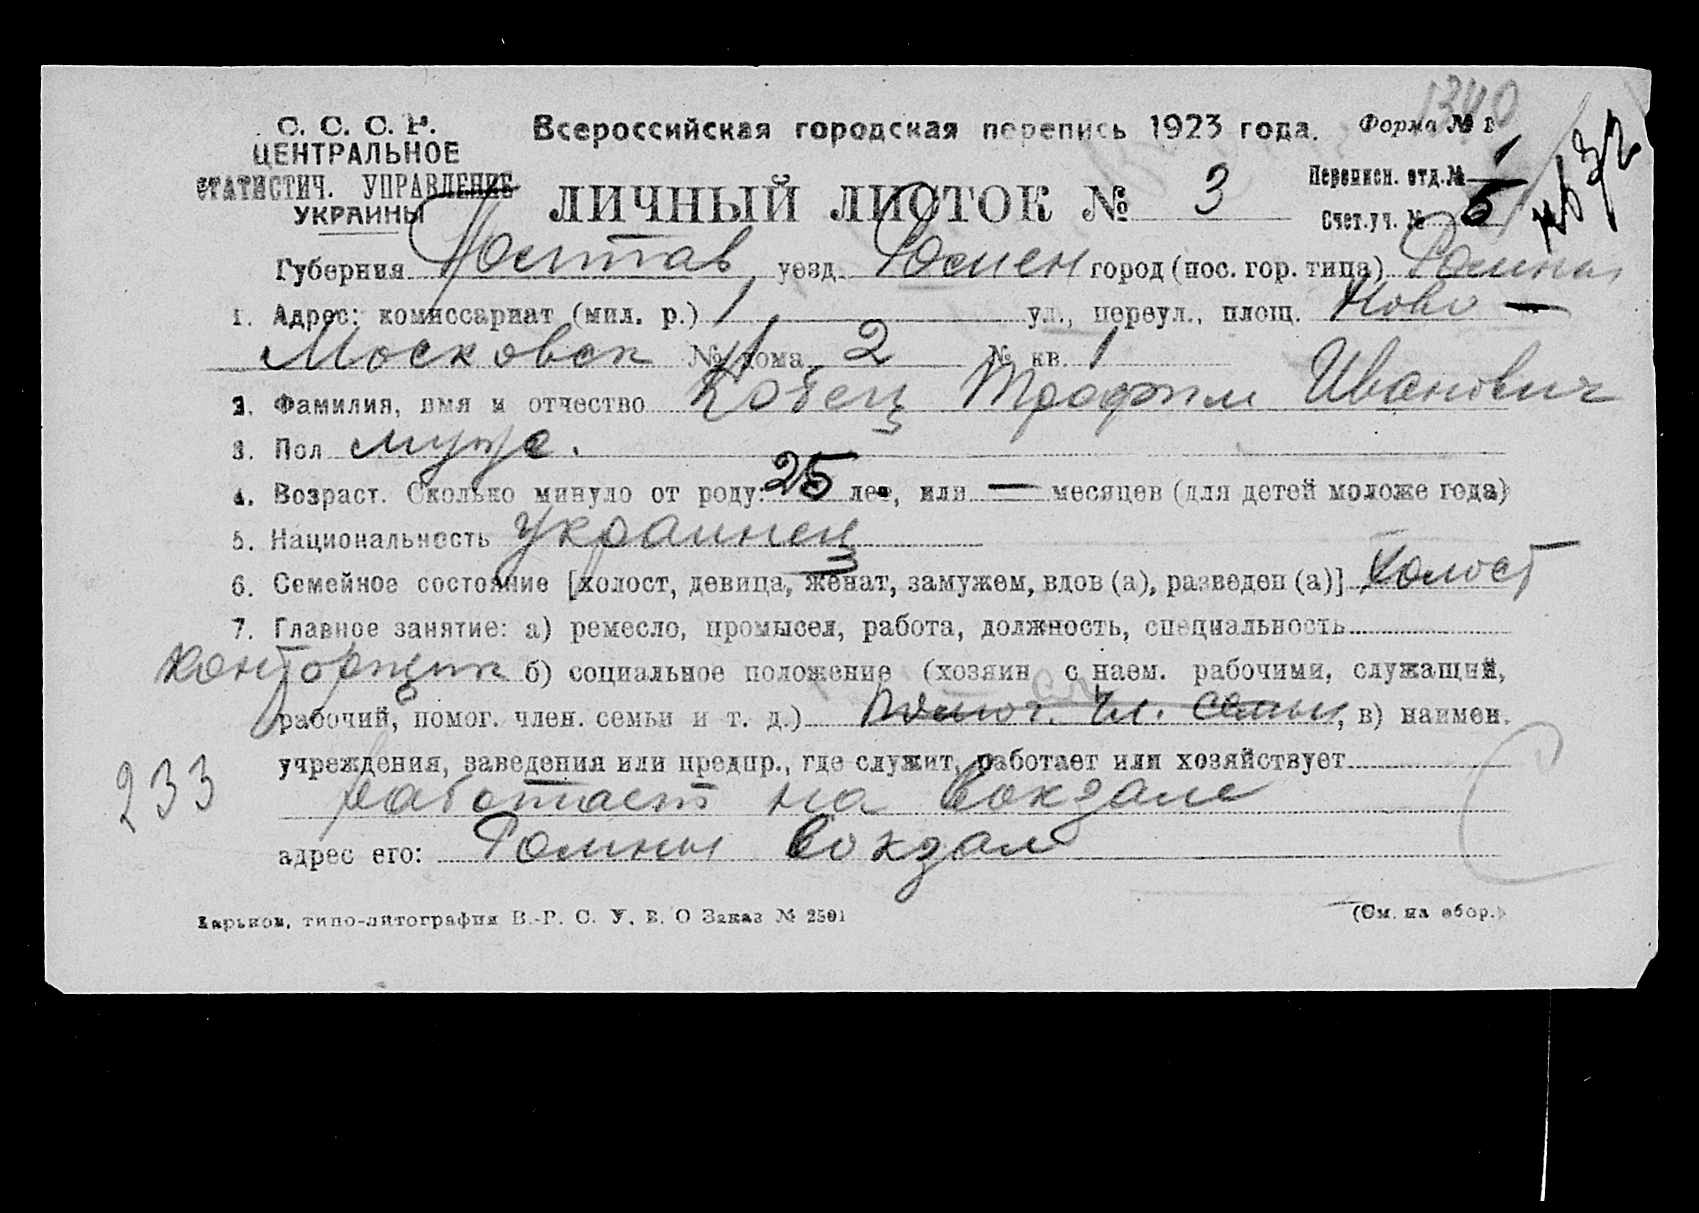 1340
С. С. С. Р.
ЦЕНТРАЛЬНОЕ
СТАТИСТИЧ. УПРАВЛЕНИЕ
УКРАИНЫ
Всероссийская городская перепись 1923 года.
Форма № 1
ЛИЧНЫЙ ЛИСТОК № 3
Переписн. отд. № 1
Счет. уч. № 5
Губерния Полтав уезд. Ромен город (пос. гор. типа) Ромны
1. Адрес: комиссариат (мил. р.) 1 ул., переул., площ. Ново —
Московск № дома 2 № кв. 1
2. Фамилия, имя и отчество Кобец Трофим Иванович
3. Пол мужс.
4. Возраст. Сколько минуло от роду: 25 лет, или — месяцев (для детей моложе года)
5. Национальность Украинец
6. Семейное состояние [холост, девица, женат, замужем, вдов (а), разведен (а)] Холост
7. Главное занятие: а) ремесло, промысел, работа, должность, специальность
Конторщик б) социальное положение (хозяин с наем. рабочими, служащий,
рабочий, помог. член. семьи и т. д.) Помог. Чл. Семьи, в) наимен.
учреждения, заведения или предпр., где служит, работает или хозяйствует
233
Работает на вокзале
адрес его: Ромны вокзал
Харьков, типо-литография В.-Р. С. У. В. О Заказ № 2501
(См. на обор.)